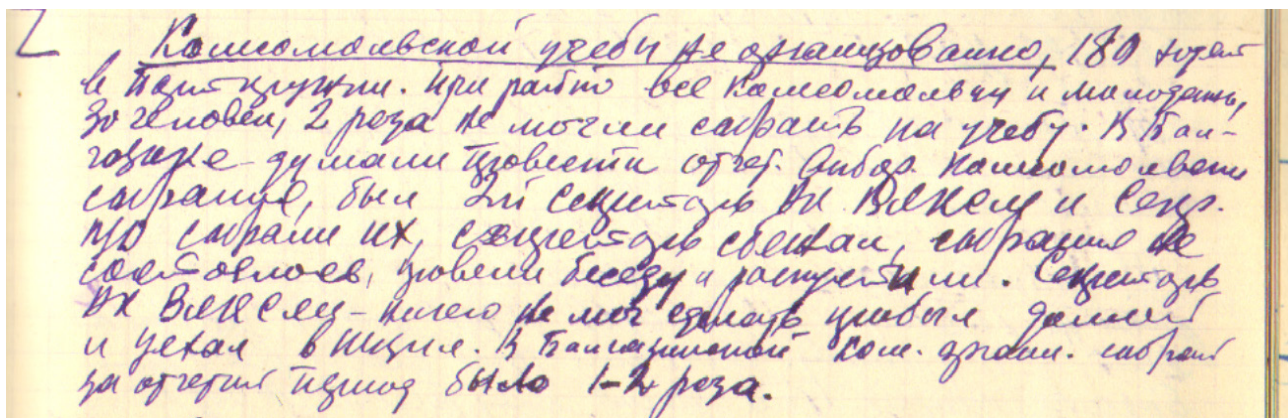 Комсомольской учебы не организованно, 180 ходят
в политкружки. При работе все комсомольцы и молодежь,
30 человек, 2 раза не могли собрать на учебу. В Бал-
газыке думали провести отчет. выбор. комсомольские
собрание, был 2й секретарь РК ВЛКСМ и секр.
п/о собрали их, секретарь сбежал, собрание не
состоялось, провели беседу и распустили. Секретарь
РК ВЛКСМ - ничего не мог сделать прибыл домой
и уехал в Кызыл. В Балгазынской ком. орган. собран
за отчетный период было 1-2 раза.